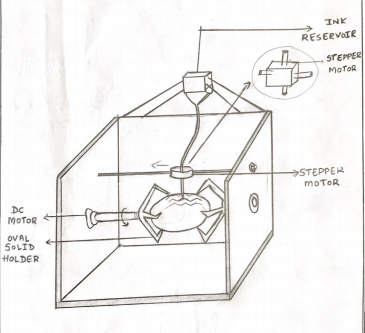 INK
RESERVOIR
STEPPER
MOTOR
STEPPER
MOTOR
DC
MOTOR
OVAL
SOLID
HOLDER